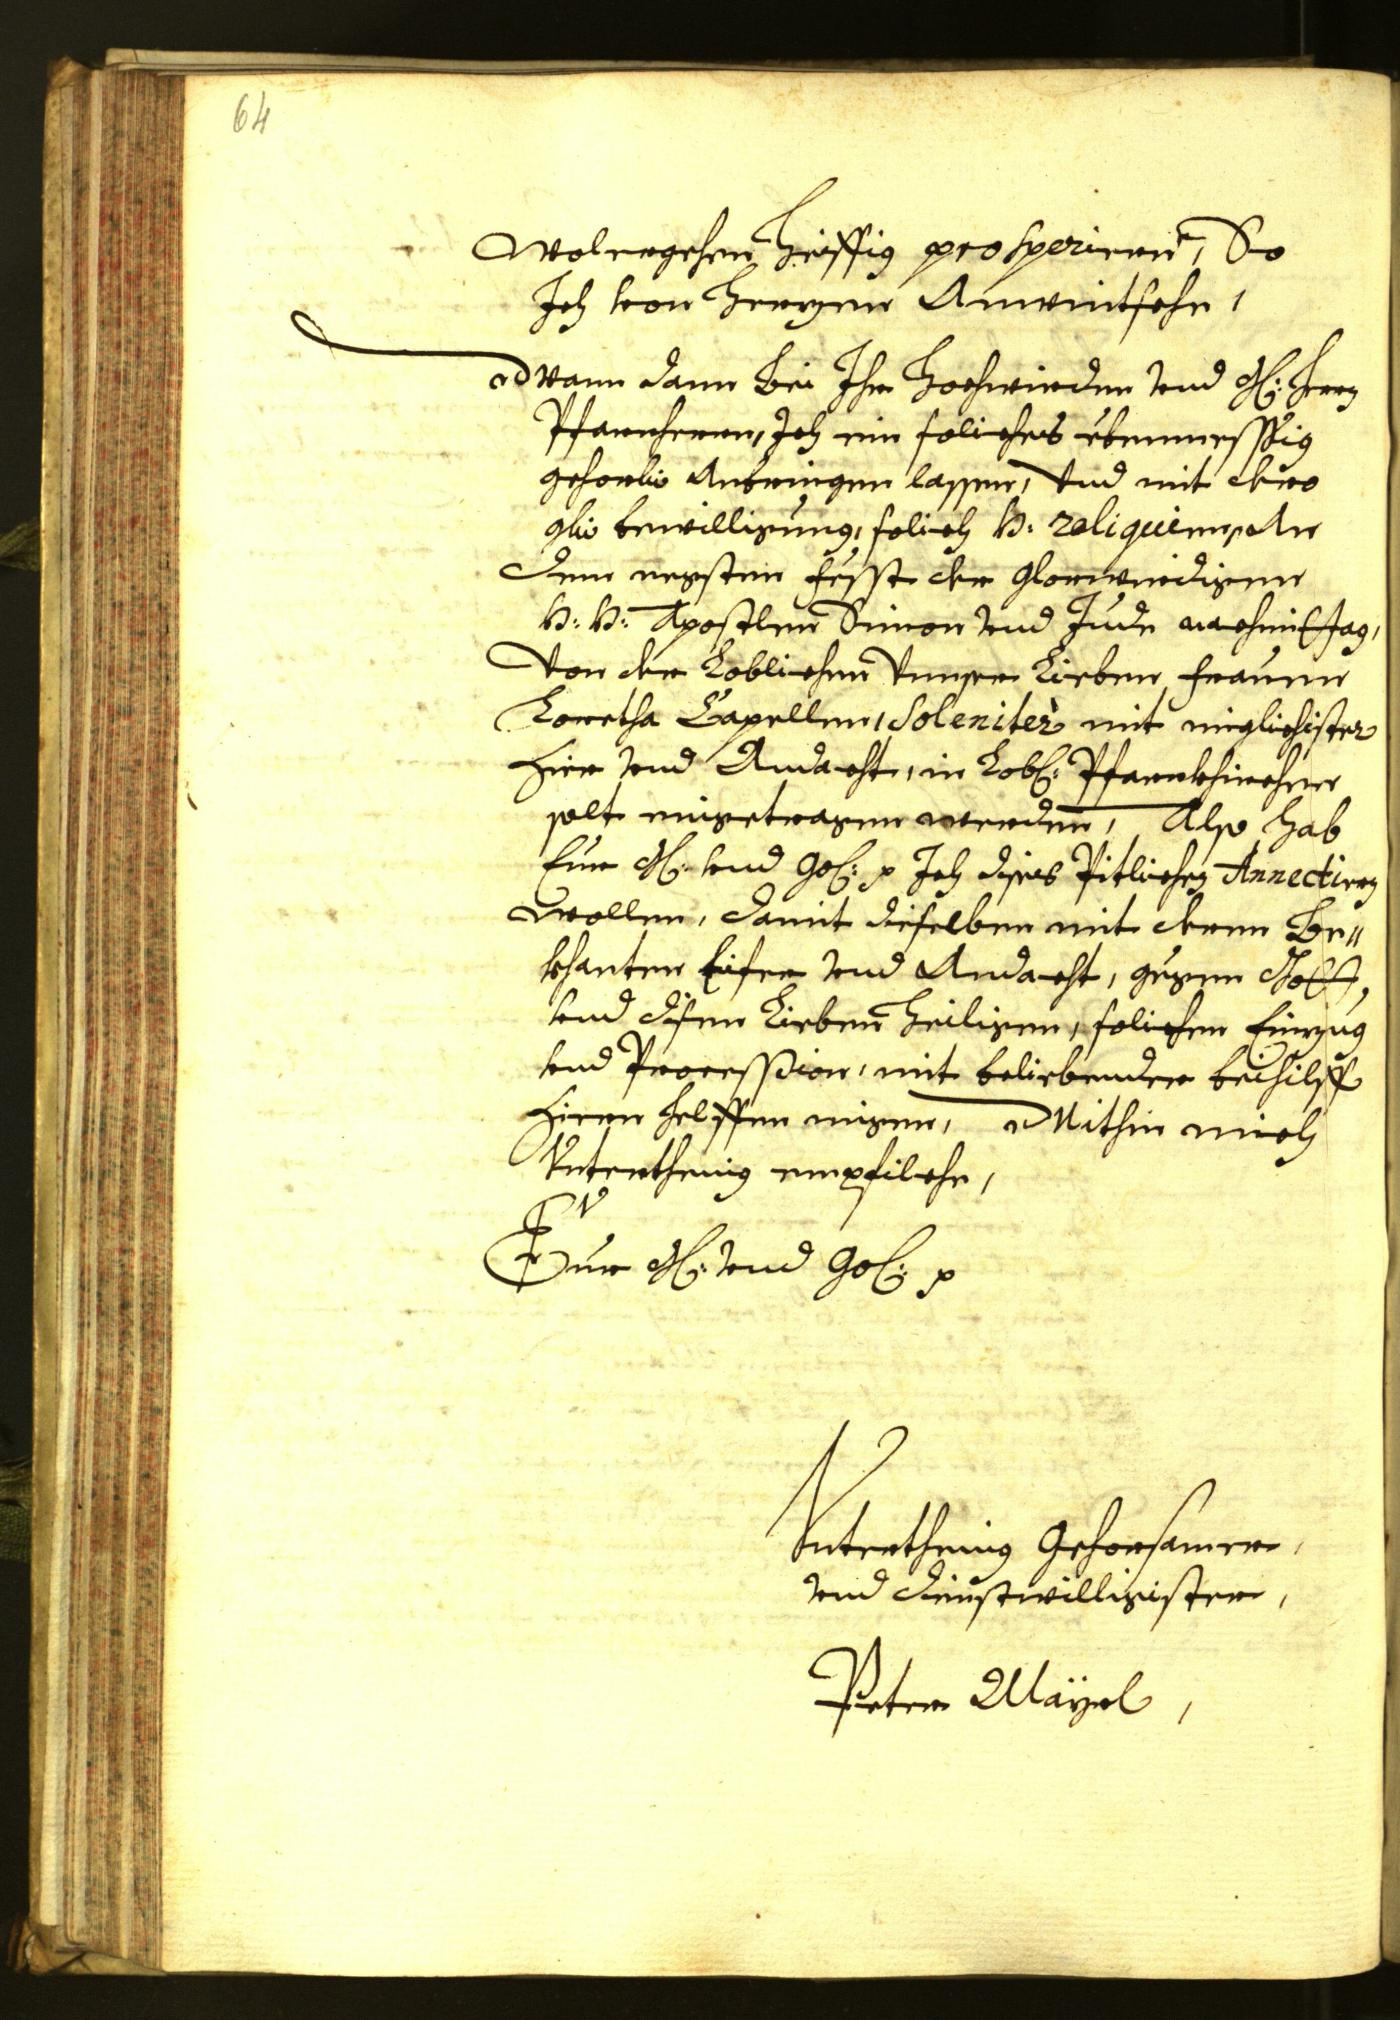 64
Wolergehen heuffig prosperiern, So
Ich von herzen Anwintsche,
Wann dann bei Ihr Hochwirden vnd G: herrn
Pfarrherrn, Ich ein soliches ebenmessig
gehorb: Anbringen lassen, Vnd mit dero
gdi: bewilligung, solich H: reliquien, An
dem negsten fesst der Glorwirdigen
H: H: Apostlen Simon vnd Jude nachmittag,
Von der Loblichen Vnnser Lieben Frauen
Loretha Capellen, Soleniter mit miglichister
Zier vnd Andacht, in Lobl: Pfarrkhirchen
solt eingetragen werden, Also hab
Eur G: vnd Hl: p Ich dises Pitlichen Annectiern
wollen, damit dieselben mit deren Be//
khanten Eifer vnd Andacht, gegen Gott,
vnd disen Lieben Heiligen, solichen Einzug
vnd Procession, mit beliebender beihilff
Zieren helffen migen, Mithin mich
Vnterthenig empfilche,
Eur G: vnd Hl: p
Vnterthenig Gehorsamer,
vnd dienstwilligister,
Peter Mäyrl,